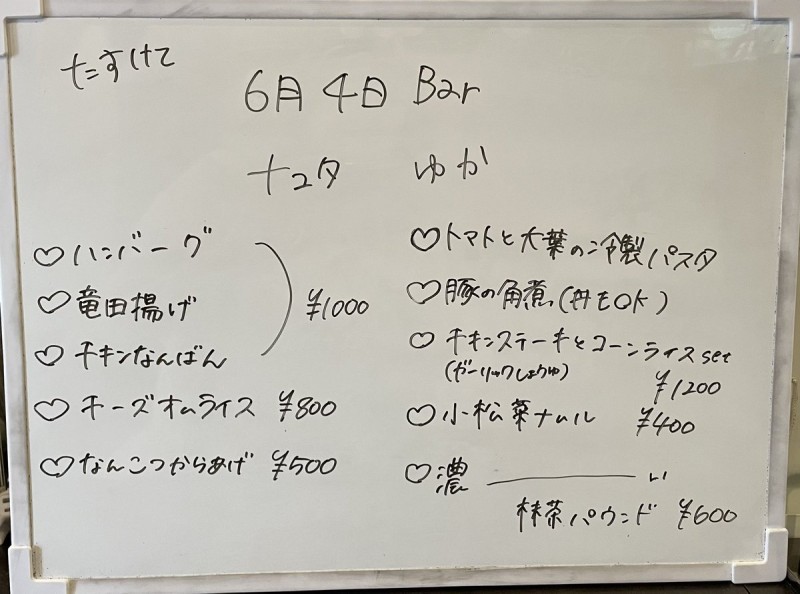 たすけて
6月4日 Bar
ナユタ ゆか
♡ハンバーグ
♡竜田揚げ ¥1000
♡チキンなんばん
♡チーズオムライス ¥800
♡なんこつからあげ ¥500
♡トマトと大葉の冷製パスタ
♡豚の角煮(丼もOK)
♡チキンステーキとコーンライスset
(ガーリックしょうゆ)
¥1200
♡小松菜ナムル ¥400
♡濃―――い
抹茶パウンド ¥600